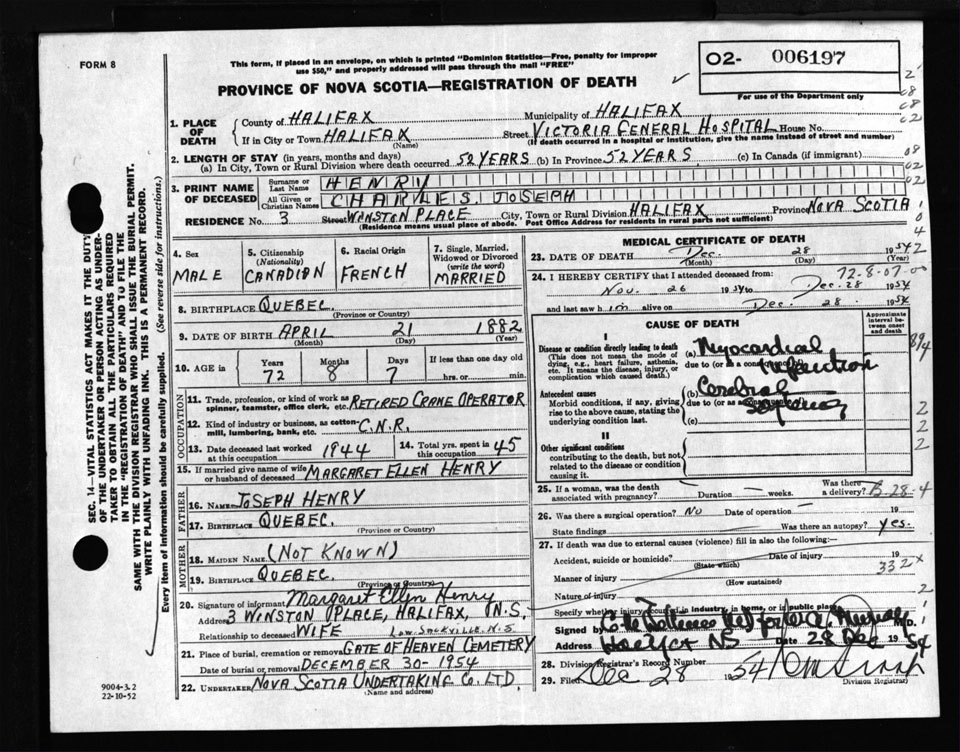 FORM 8
This form, if placed in an envelope, on which is printed "Dominion Statistics—Free, penalty for improper
use $50," and properly addressed will pass through the mail "FREE"
O2- 006197
For use of the Department only
PROVINCE OF NOVA SCOTIA—REGISTRATION OF DEATH
1. PLACE OF DEATH
County of HALIFAX Municipality of HALIFAX
If in City or Town HALIFAX Street VICTORIA GENERAL HOSPITAL House No.
(Name) (If death occurred in a hospital or institution, give the name instead of street and number)
2. LENGTH OF STAY (in years, months and days)
(a) In City, Town or Rural Division where death occurred 52 YEARS (b) In Province 52 YEARS. (c) In Canada (if immigrant)
3. PRINT NAME OF DECEASED
Surname or Last Name HENRY
All Given or Christian Names CHARLES JOSEPH
RESIDENCE No. 3 Street WINSTON PLACE City, Town or Rural Division HALIFAX Province NOVA SCOTIA
(Residence means usual place of abode. Post Office Address for residents in rural parts not sufficient)
4. Sex MALE
5. Citizenship (Nationality) CANADIAN
6. Racial Origin FRENCH
7. Single, Married, Widowed or Divorced (write the word) MARRIED
8. BIRTHPLACE QUEBEC.
(Province or Country)
9. DATE OF BIRTH APRIL 21 1882
(Month) (Day) (Year)
10. AGE in Years 72 Months 8 Days 7 If less than one day old hrs. or min.
OCCUPATION
11. Trade, profession, or kind of work as spinner, teamster, office clerk, etc. RETIRED CRANE OPERATOR
12. Kind of industry or business, as cotton mill, lumbering, bank, etc. C.N.R.
13. Date deceased last worked at this occupation 1944
14. Total yrs. spent in this occupation 45
15. If married give name of wife or husband of deceased MARGARET ELLEN HENRY
FATHER
16. NAME JOSEPH HENRY
17. BIRTHPLACE QUEBEC.
(Province or Country)
MOTHER
18. MAIDEN NAME (NOT KNOWN)
19. BIRTHPLACE QUEBEC.
(Province or Country)
20. Signature of informant Margaret Ellen Henry
Address 3 WINSTON PLACE, HALIFAX, N.S.
Relationship to deceased WIFE
LOW. SACKVILLE. N.S
21. Place of burial, cremation or removal GATE OF HEAVEN CEMETERY
Date of burial or removal DECEMBER 30 - 1954
22. UNDERTAKER NOVA SCOTIA UNDERTAKING CO. LTD.
(Name and address)
MEDICAL CERTIFICATE OF DEATH
23. DATE OF DEATH Dec. 28 1954
(Month) (Day) (Year)
72-8-07-00
24. I HEREBY CERTIFY that I attended deceased from:
Nov. 26 1954 to Dec. 28 1954
and last saw him alive on Dec. 28. 1954
CAUSE OF DEATH
Approximate interval between onset and death
I
Disease or condition directly leading to death
(This does not mean the mode of dying, e.g., heart failure, asthenia, etc. It means the disease, injury, or complication which caused death.)
(a) Myocardial
due to (or as a consequence of)
Antecedent causes
Morbid conditions, if any, giving rise to the above cause, stating the underlying condition last.
(b) Cerebral
due to (or as a consequence of)
(c)
II
Other significant conditions
contributing to the death, but not related to the disease or condition causing it.
25. If a woman, was the death associated with pregnancy? Duration weeks. Was there a delivery?
B-28-4
26. Was there a surgical operation? No Date of operation
State findings Was there an autopsy? Yes.
27. If death was due to external causes (violence) fill in also the following:—
Accident, suicide or homicide? Date of injury 19
(State which)
332x
Manner of injury
(How sustained)
Nature of injury
Specify whether injury occurred in industry, in home, or in public place
Signed by M.D.
Address Halifax NS Date 28 Dec 1954
28. Division Registrar's Record Number
29. Filed Dec 28 1954
Division Registrar
SEC. 14—VITAL STATISTICS ACT MAKES IT THE DUTY
OF THE UNDERTAKER OR PERSON ACTING AS UNDER-
TAKER TO OBTAIN ALL THE PARTICULARS REQUIRED
IN THE "REGISTRATION OF DEATH" AND TO FILE THE
SAME WITH THE DIVISION REGISTRAR WHO SHALL ISSUE THE BURIAL PERMIT.
WRITE PLAINLY WITH UNFADING INK. THIS IS A PERMANENT RECORD.
Every item of information should be carefully supplied. (See reverse side for instructions.)
9004-3.2
22-10-52